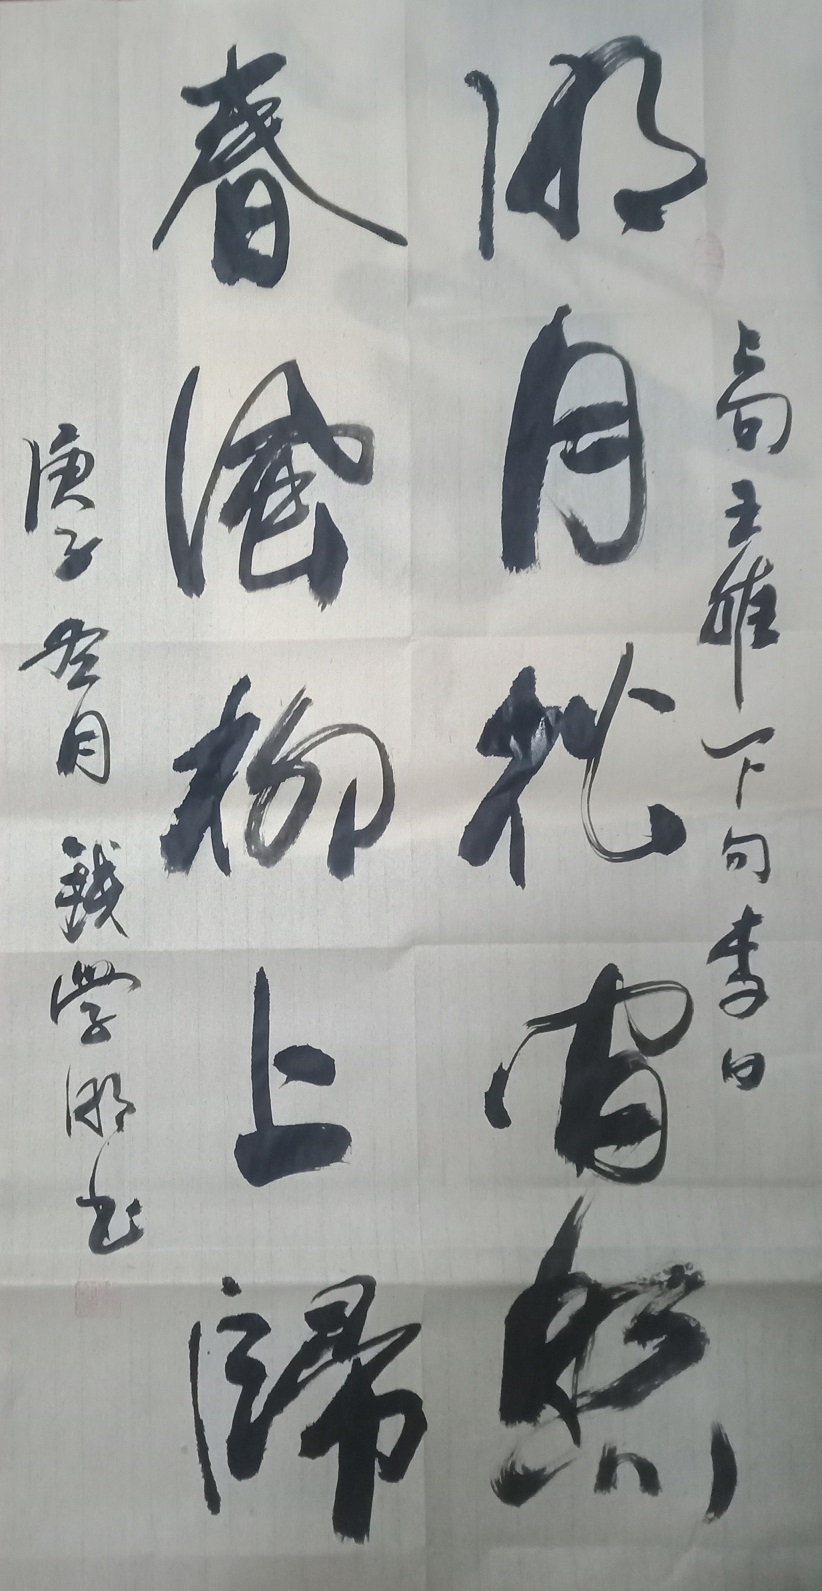 上句王维下句李白
明月松间照
春风柳上归
庚子冬月钱学明书